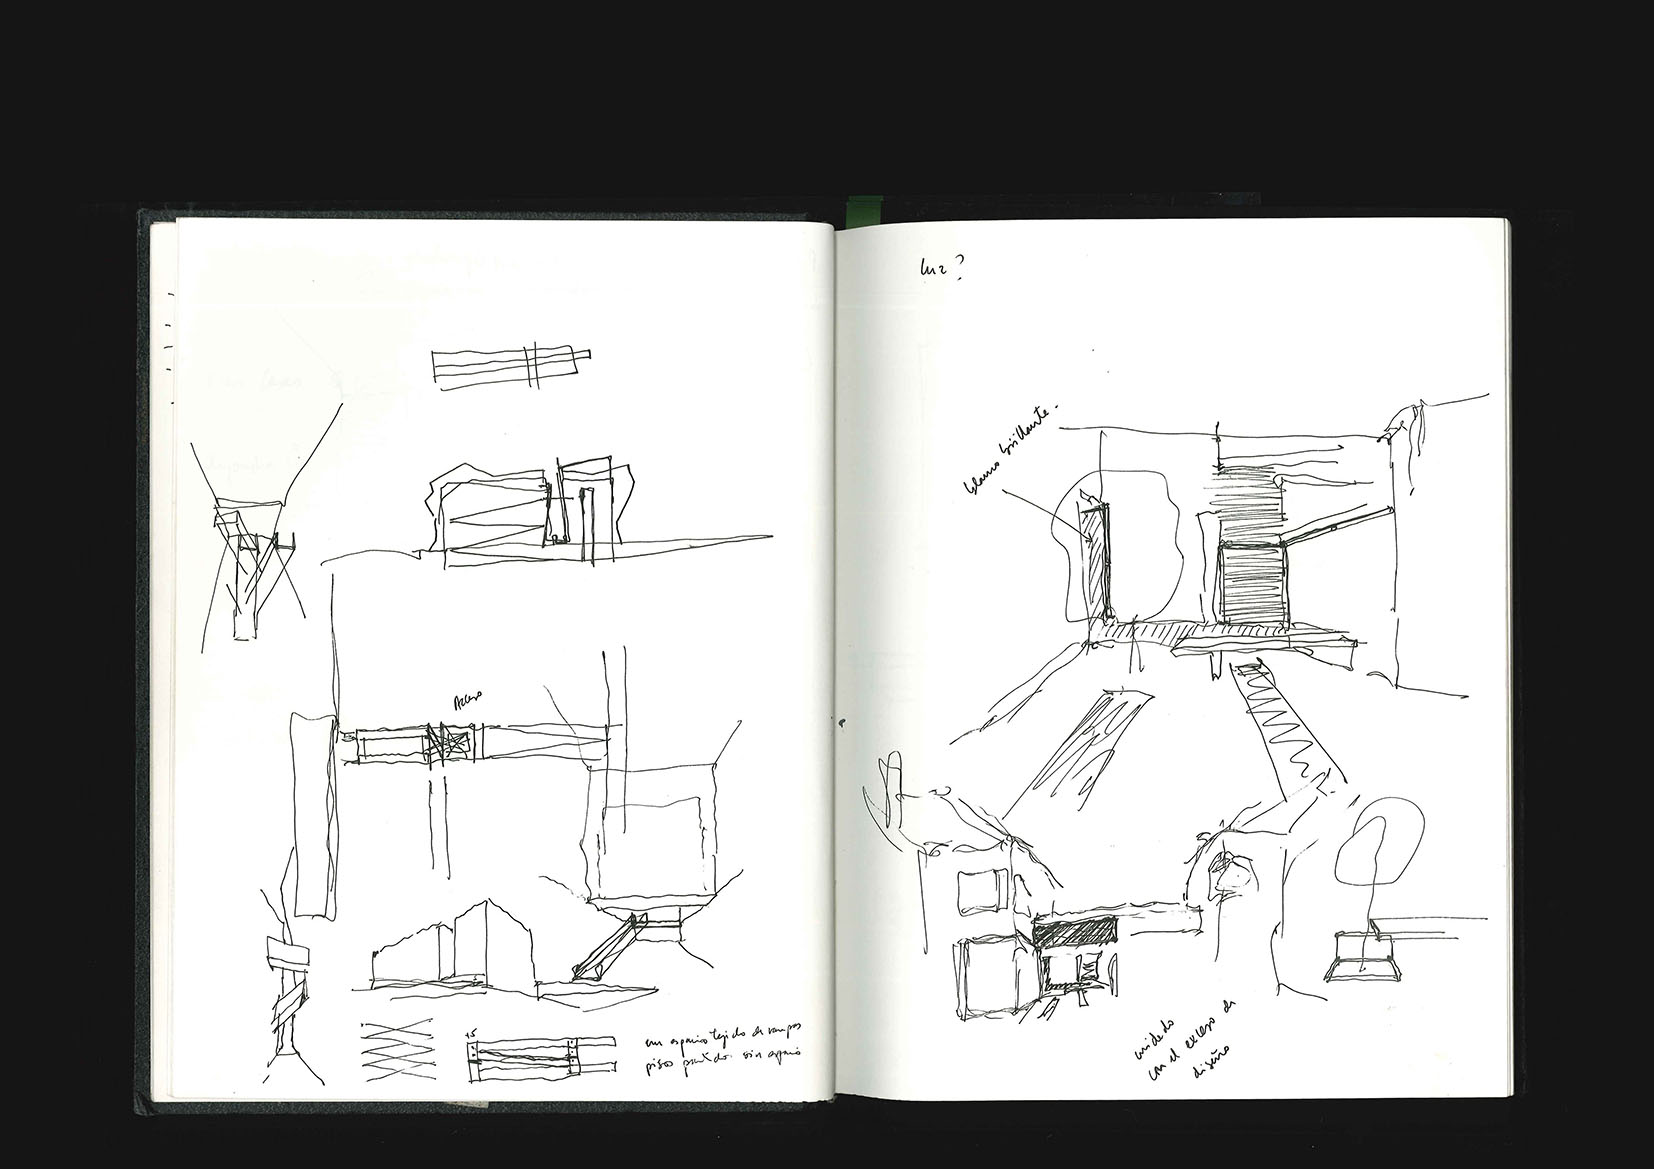 Acceso
+5
un espacio tejido de rampas
pisos partidos. sin espacio
luz?
blanco brillante.
cuidado
con el exceso de
diseño